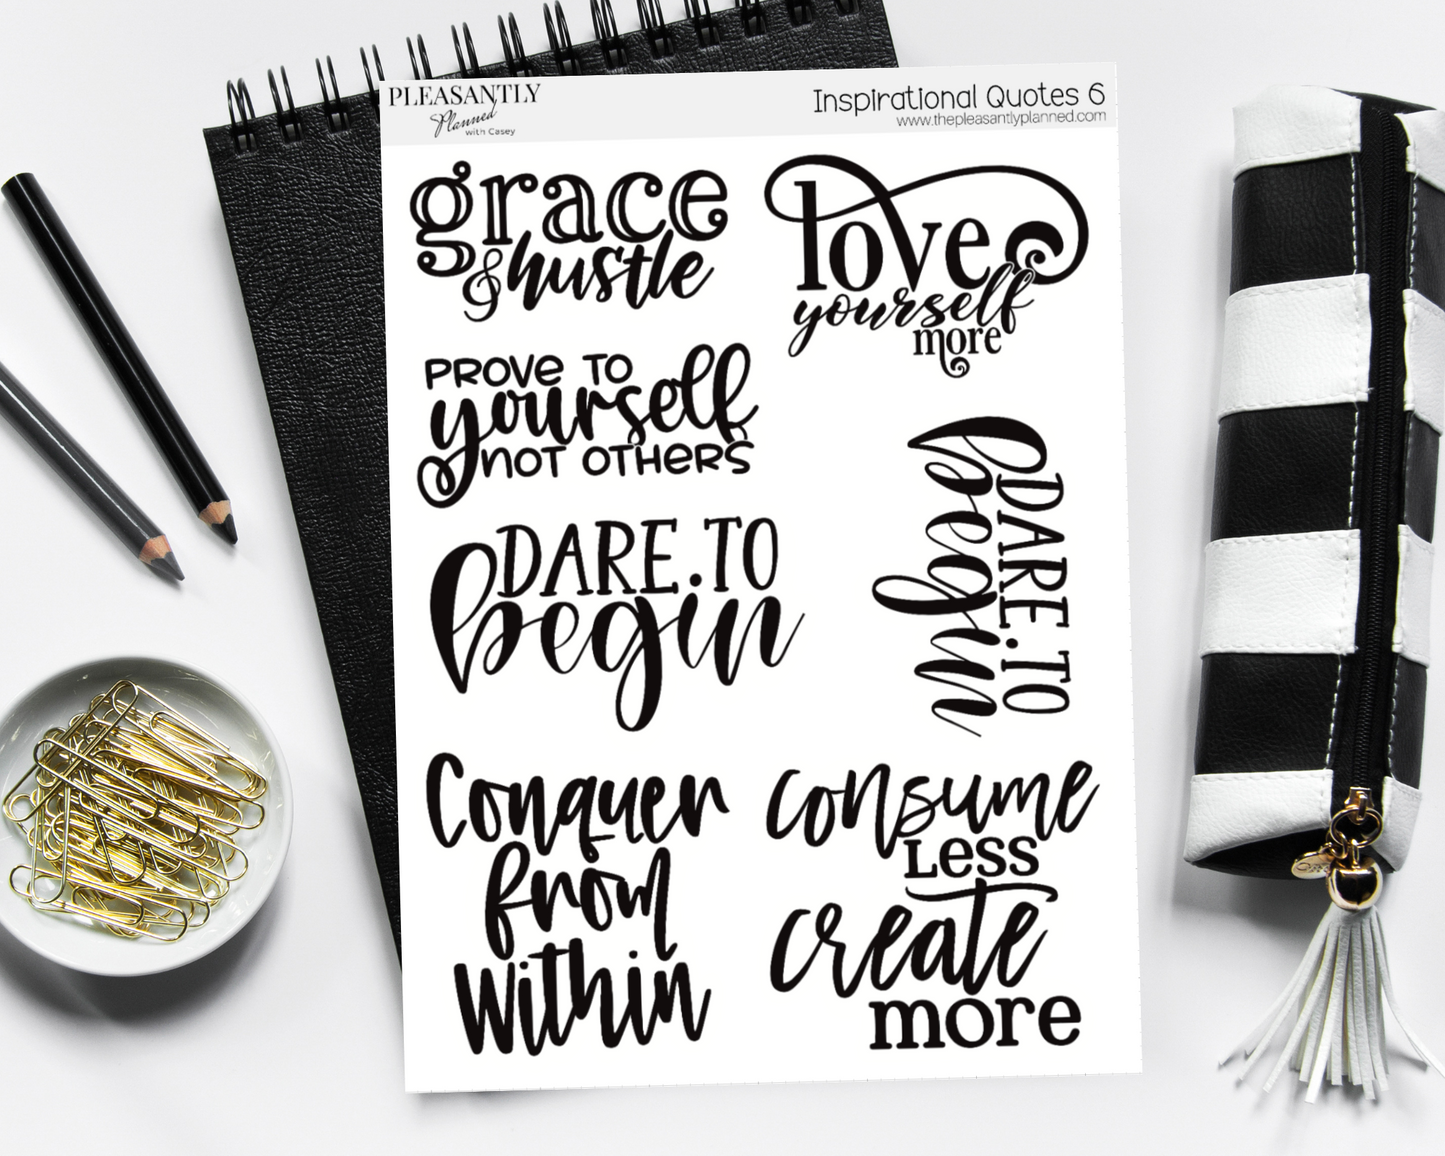 PLEASANTLY
Planned
with Casey
Inspirational Quotes 6
www.thepleasantlyplanned.com
grace
& hustle
love
yourself
more
PROVE TO
yourself
NOT OTHERS
DARE.TO
begin
DARE.TO
begin
Conquer
from
within
consume
LESS
create
more